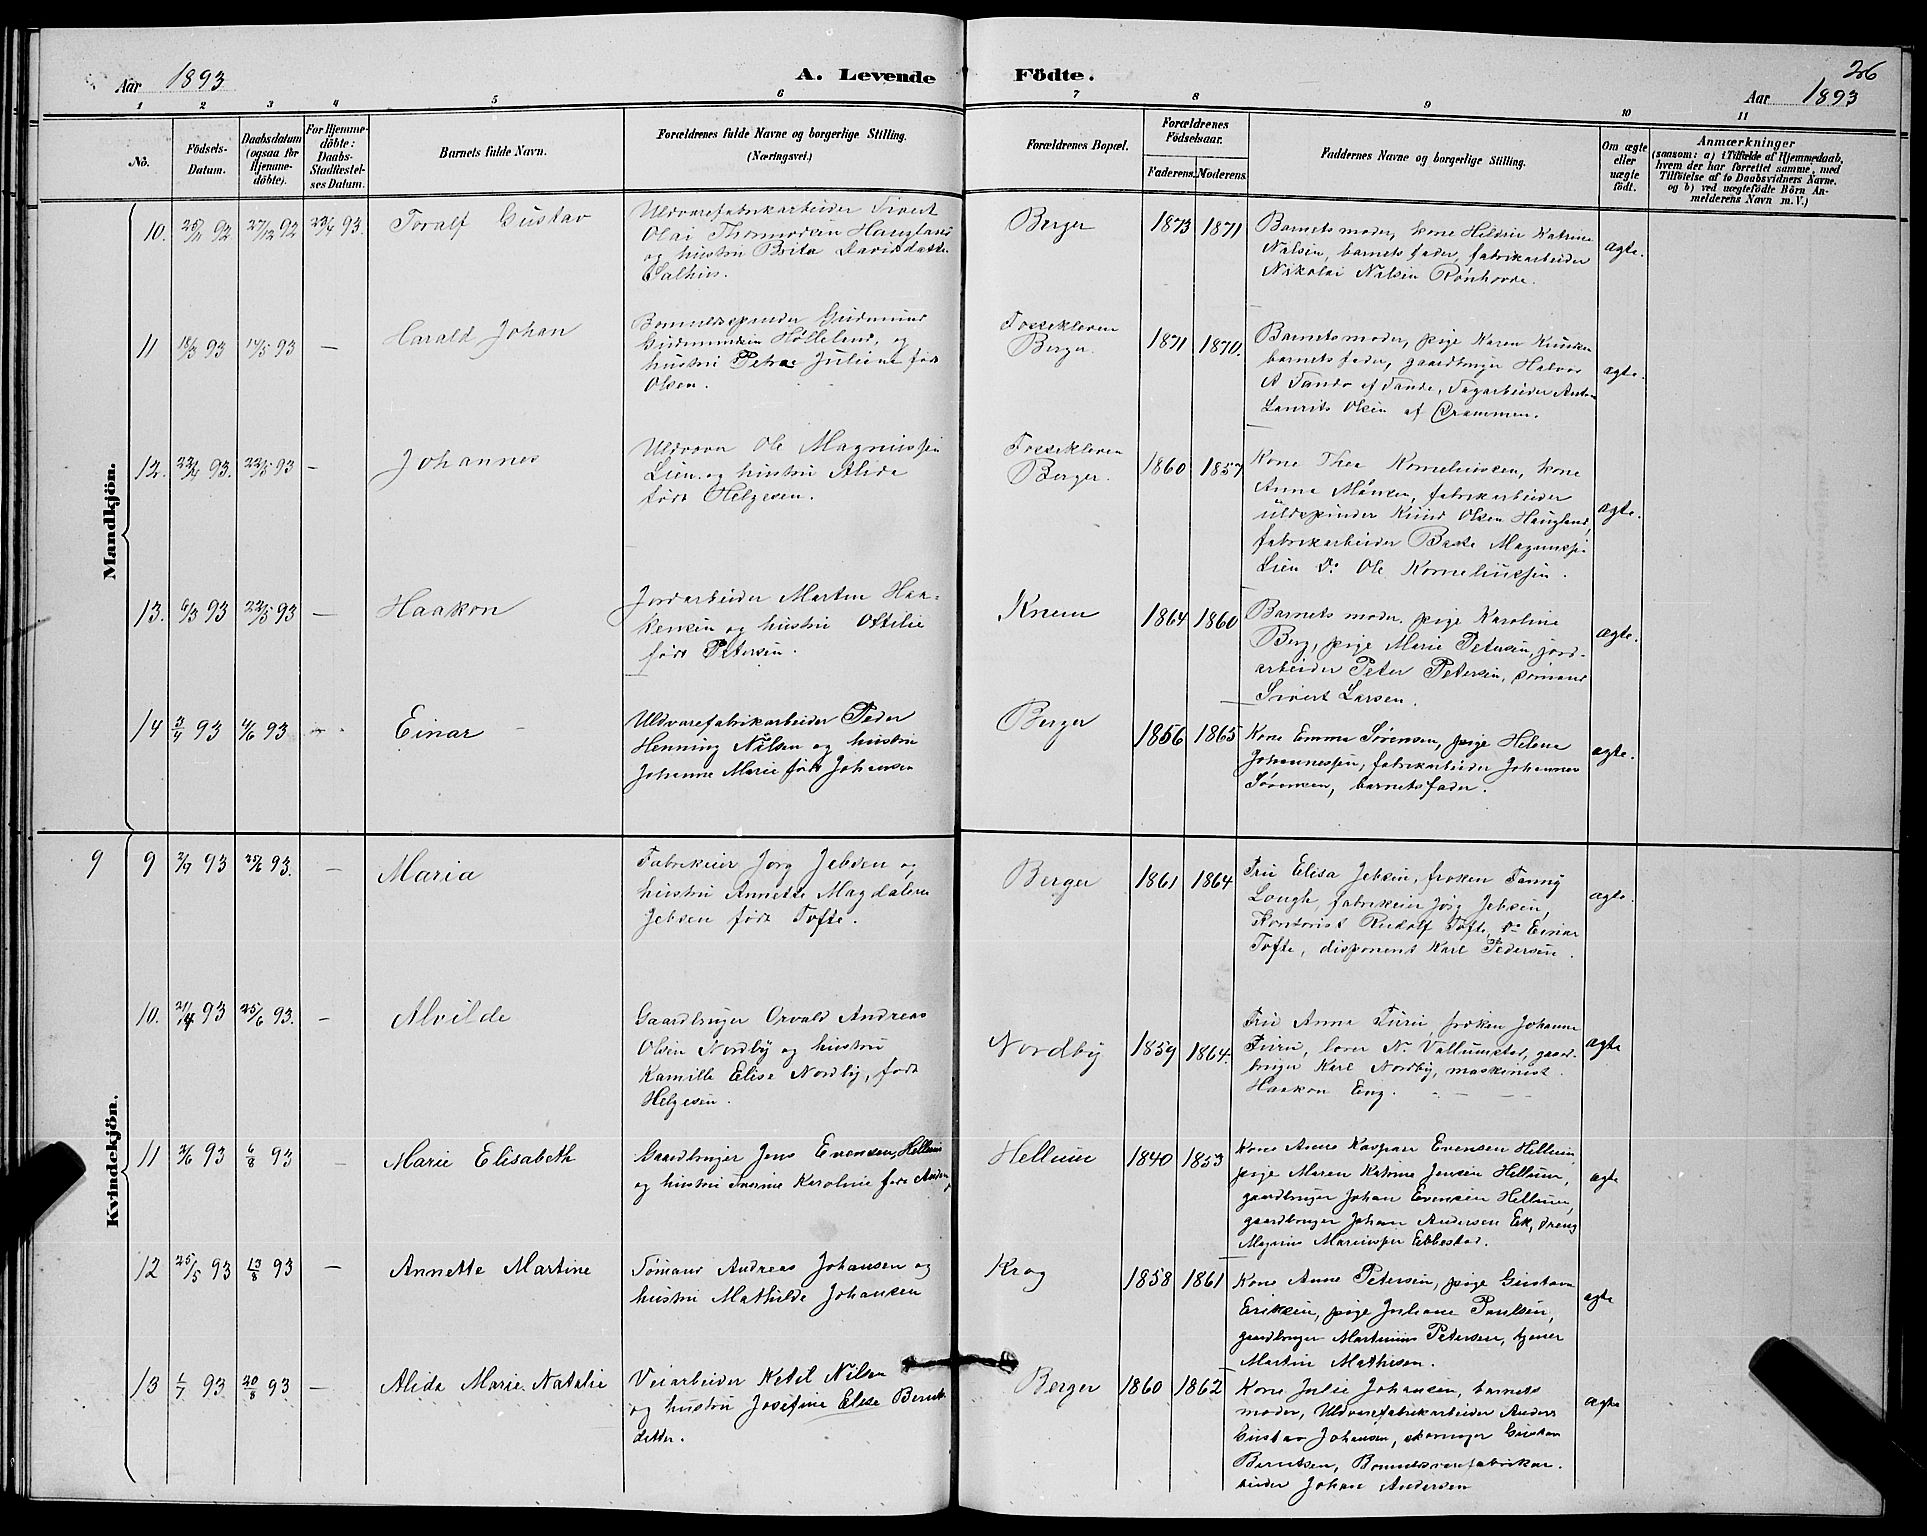 Aar 1893 A. Levende Födte. 26
Aar 1893
1 2 3 4 5 6 7 8 9 10 11
No. Födsels-Datum. Daabsdatum (ogsaa for Hjemme-döbte). For Hjemme-döbte: Daabs-Stadfæstel-ses Datum. Barnets fulde Navn. Forældrenes fulde Navne og borgerlige Stilling. (Næringsvei.) Forældrenes Bopæl. Forældrenes Födselsaar. Faderens. Moderens. Faddernes Navne og borgerlige Stilling. Om ægte eller uægte født. Anmærkninger (saasom: a) i Tilfælde af Hjemmedaab, hvem der har forrettet samme, med Tilföielse af to Daabsvidners Navne, og b) ved uægtefödte Börn An-melderens Navn m. V.)
Mandkjön.
10. 92 27/12 92 93. Toralf Gustav
Uldvarefabrikarbeider Sivert
Olai Haugland
og hustru Brita
Salhus.
Berger 1873 1871
Barnets moder, kone Katrine
Nilsen, barnets fader, fabrikarbeider
Nikolai Nilsen
ægte.
11 18/3 93 14/5 93 — Harald Johan
Gudmund
og
hustru Petra Juliane født
Olsen.
Fossekleven
Berger. 1871 1870.
Barnets moder, pige Karen
barnets fader, gaardbruger Halvor
A Sande af Sande, Dagarbeider Anton
Laurits Olsen af Drammen.
ægte.
12. 93. 22/5 93 — Johannes
Ole Magnussen
Lien og hustru Alida
født Helgesen.
Fossekleven
Berger. 1860 1857
Kone Thea Korneliussen, kone
Anna fabrikarbeider
uldspinder Knud Olsen Haugland,
fabrikarbeider Magnussen
Lien Do Ole Korneliussen.
ægte.
13. 6/3 93 22/5 93 — Haakon
Jordarbeider Martin Haa-
kensen og hustru Ottilie
født Petersen.
Knem 1864 1860
Barnets moder, pige Karoline
Berg, pige Marie Petersen, jord-
arbeider Peter Petersen, sømand
Sivert Larsen.
ægte.
14 3/4 93 4/6 93 — Einar
Uldvarefabrikarbeider Peder
Henning Nilsen og hustru
Johanne Marie født Johansen
Berger 1856 1865
Kone Emma Sørensen, pige Helene
Johannessen, fabrikarbeider Johannes
Sørensen, barnets fader.
ægte.
Kvindekjön.
9 9 93 25/6 93. — Maria
Fabrikeier Jørg Jebsen og
hustru Annette Magdalena
Jebsen født Tofte.
Berger 1861 1864
Fru Elisa Jebsen, frøken Fanny
fabrikeier Jørg Jebsen,
Kontorist Rudolf Tofte, Do Einar
Tofte, disponent Karl Pedersen.
ægte.
10. 21/4 93 25/6 93. — Alvilde
Gaardbruger Orvald Andreas
Olsen Nordby og hustru
Kamilla Elise Nordby, født
Helgesen.
Nordby 1859 1864.
Fru Anna Furu, frøken Johanne
Furu, lærer N. gaard-
bruger Karl Nordby, maskinist
Haakon Eng.
ægte
11 2/6 93 6/8 93 — Marie Elisabeth
Gaardbruger Jens Evensen Hellum
og hustru Karoline født
Hellum 1840 1853
Kone Anne Kaspara Evensen Hellum,
pige Maren Katrine Jensen Hellum,
gaardbruger Johan Evensen Hellum,
gaardbruger Johan Andersen Ek, dreng
Magnus Mariussen Ebbestad.
ægte
12 25/5 93 13/8 93 — Annette Martine
Sømand Andreas Johansen og
hustru Mathilde Johansen
Krog 1858 1861
Kone Anne Petersen, pige Gustava
Eriksen, pige Juliane Paulsen,
gaardbruger Martinius Petersen, tjener
Martin Mathisen.
ægte
13 1/7 93 20/8 93 — Alida Marie Natalie
Veiarbeider Ketil Nilsen
og hustru Josefine Elise Bernt-
datter.
Berger 1860 1862
Kone Julie Johansen, barnets
moder, Uldvarefabrikarbeider Anders
Gustav Johansen, skomager Gustav
Berntsen, Bomuldsvarefabrikar-
beider Johan Andersen
ægte